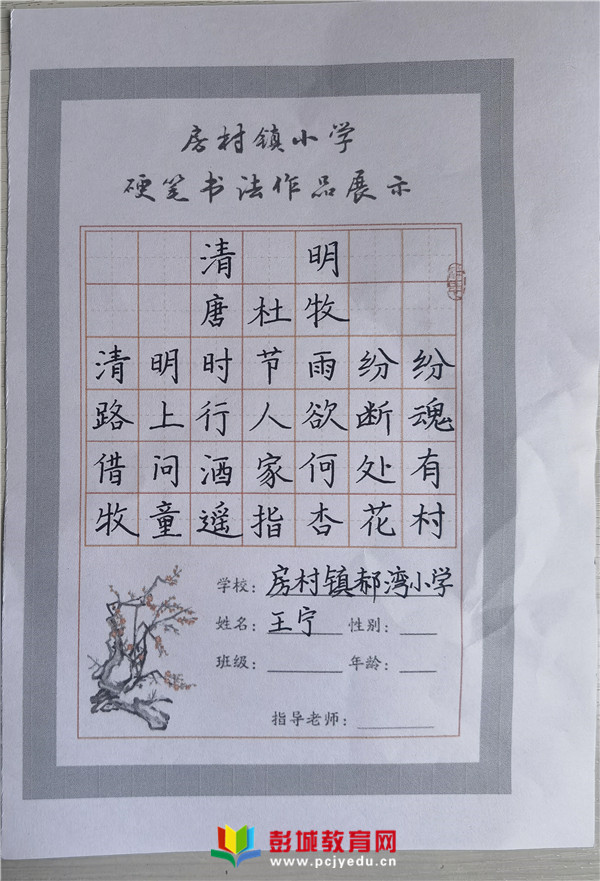 房村镇小学
硬笔书法作品展示
清明
唐杜牧
清明时节雨纷纷
路上行人欲断魂
借问酒家何处有
牧童遥指杏花村
学校：房村镇郝湾小学
姓名：王宁 性别：
班级： 年龄：
指导老师：
彭城教育网
www.pcjyedu.cn